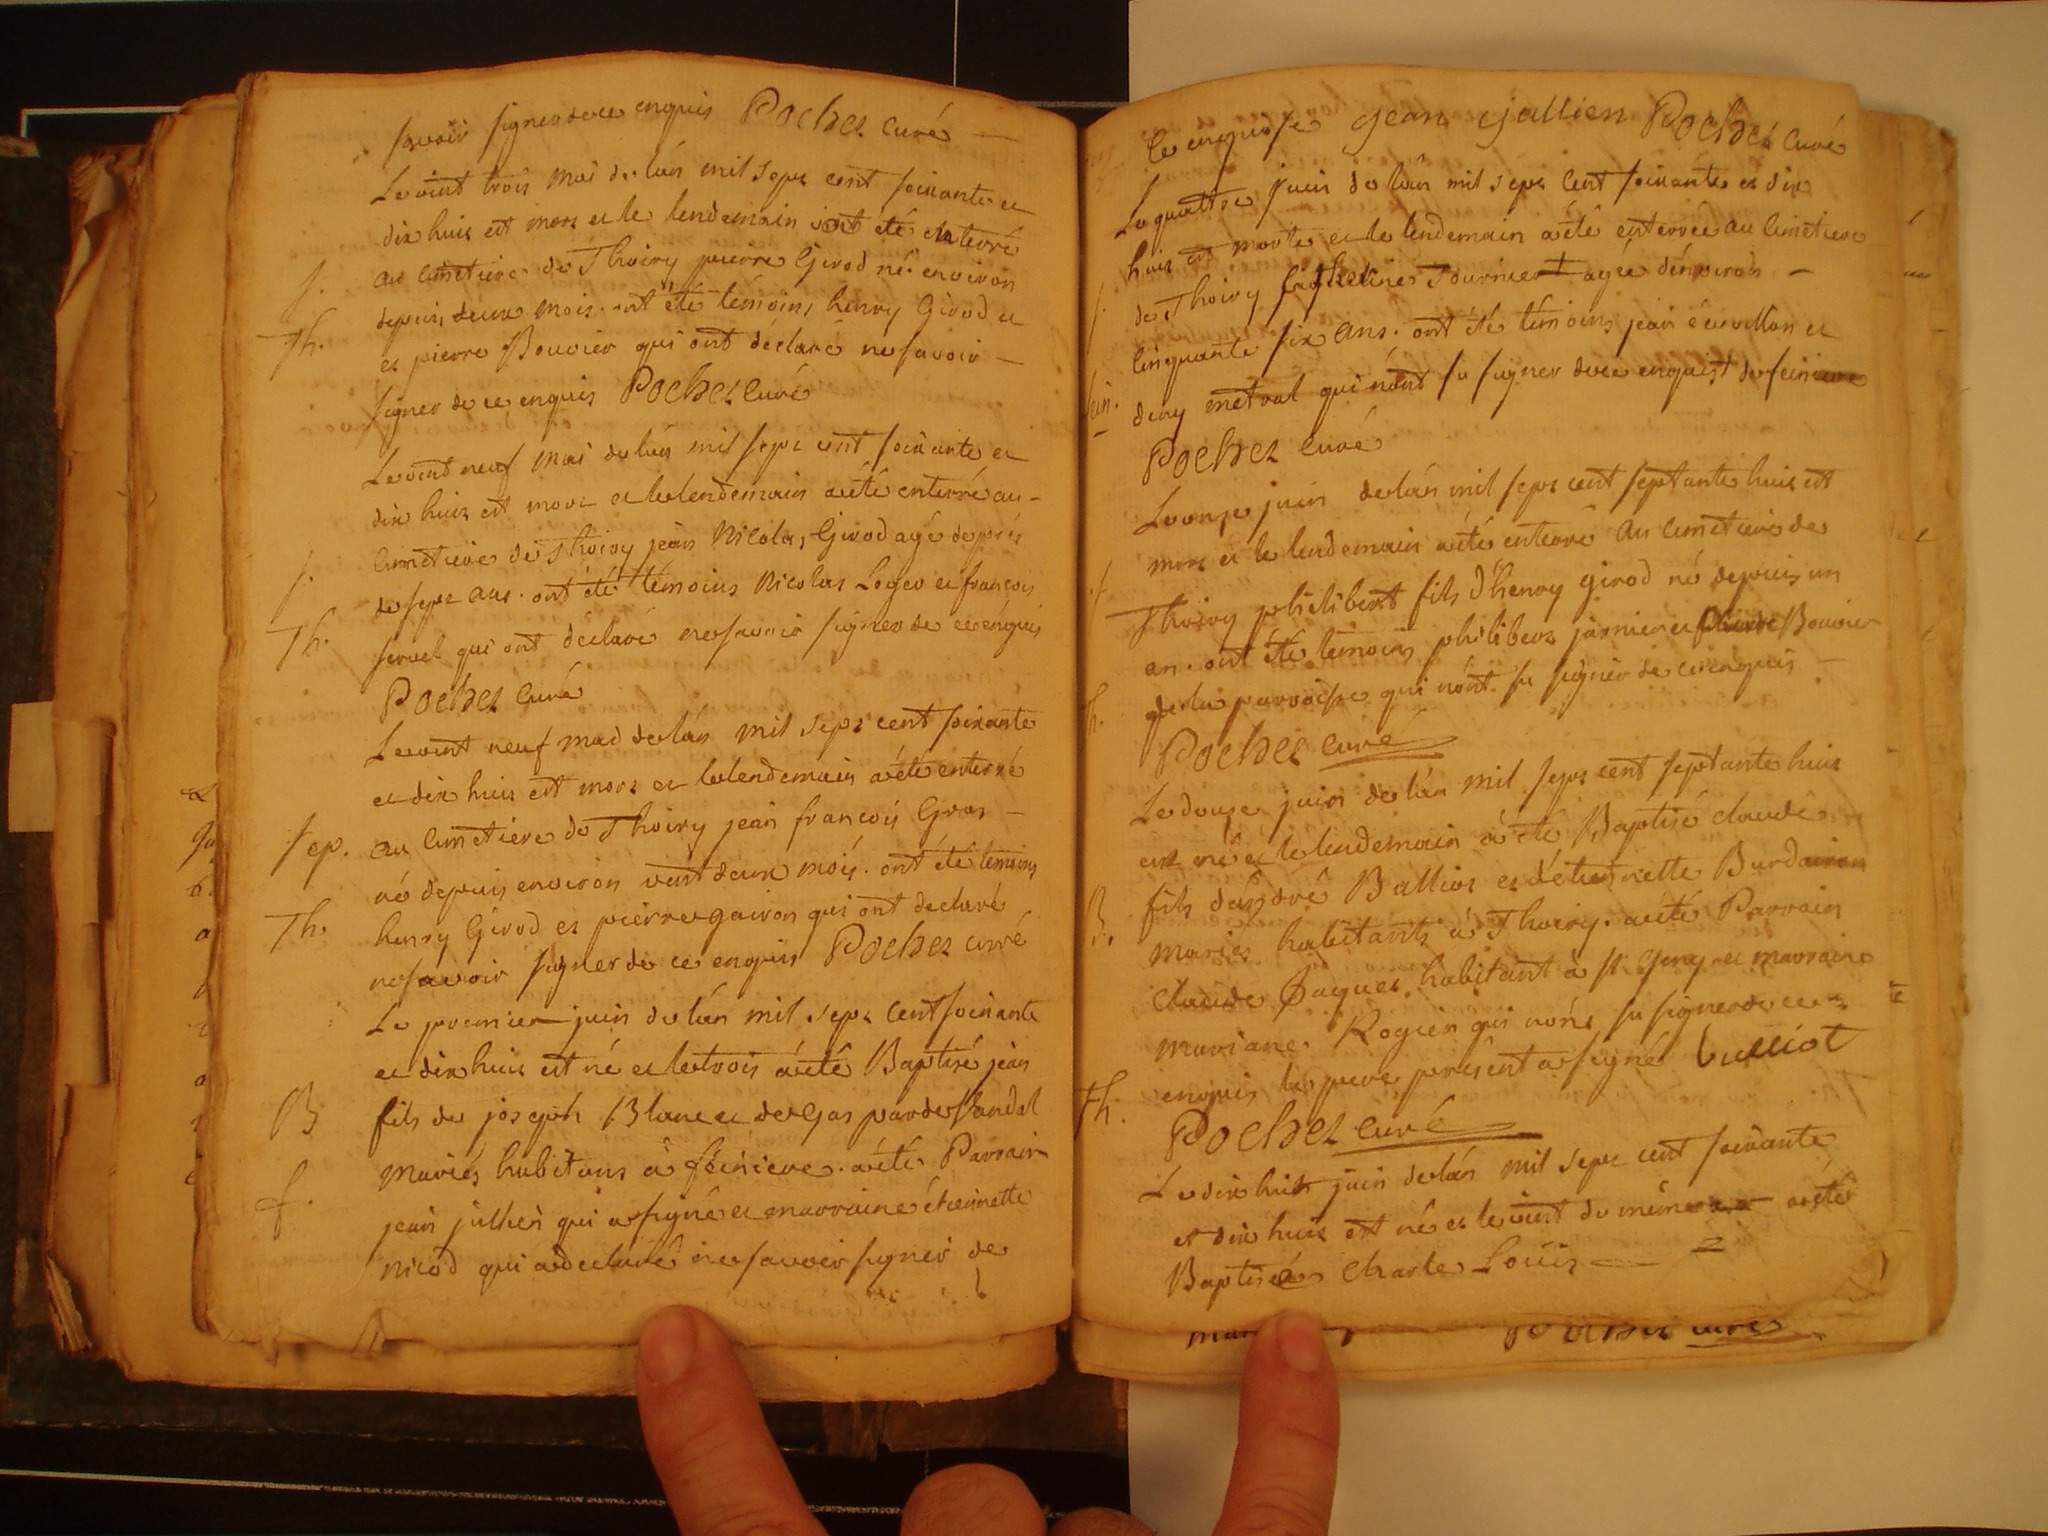 savoir signer de ce enquis Pochet curé
Le vint trois mai de l'án mil sept cent soixante et
dix huit est mort et le lendemain ont été enterré
au cimetiere de Thoiry pierre Girod né environ
s.
depuis deux mois. ont été témoins henry Girod et
Th.
et pierre Bouvier qui ont déclaré ne savoir
signer de ce enquis Pochet curé
Le vint neuf mai de l'án mil sept cent soixante et
dix huit est mort et le lendemain a été enterré au
cimetiere de Thoiry jean Nicolas Girod agé de près
s.
de sept ans. ont été témoins Nicolas Loger et françois
Th.
qui ont déclaré ne savoir signer de ce énquis
Pochet curé
Le vint neuf mai de l'án mil sept cent soixante
et dix huit est mort et le lendemain a été enterré
sep. au cimetiere de Thoiry jean françois Gros
né depuis environ vint deux mois. ont été témoins
Th. henry Girod et pierre gairon qui ont declaré
ne savoir signer de ce enquis Pochet curé
Le premier juin de l'án mil sept cent soixante
et dix huit est né et le trois a été Baptisé jean
B fils de joseph Blanc et de Gasparde Vandal
Mariés habitans à féiniere. a été Parrain
f.
jean jullien qui a signé et marraine étiennette
Nicod qui a declaré ne savoir signer de
ce enquise Jean Jallien Pochet curé
Le quattre juin de l'án mil sept cent soixante et dix
huit est morte et le lendemain a été enterrée au cimetiere
s. de Thoiry jaqueline Tournier agée d'énviron
cinquante six ans. ont été témoins jean écuvillon et
fein. deny métral qui n'ónt su signer de ce enquist de feiniere
Pochet curé
Le onze juin de l'án mil sept cent septante huit est
mort et le lendemain a été enterré au cimetiere de
s.
Thoiry philibert fils d'henry girod né depuis un
an. ont été témoins philibert jarnier et pierre Bouvier
Th. de la parroisse qui n'ónt su signer de ce enquis
Pochet curé
Le douze juin de l'án mil sept cent septante huit
est né et le lendemain a été Baptisé claude
fils d'ándré Balliot et d'étiennette Burdairon
B. mariés habitants à Thoiry. a été Parrain
claude Paquet habitant à st Geny et marraine
mariane Roguen qui n'ónt su signer de ce
Th. enquis le pere présent a signé bulliot
Pochet curé
Le dix huit juin de l'án mil sept cent soixante
et dix huit est né et le vint du même a été
Baptisé Charle Louis
2
Pochet curé